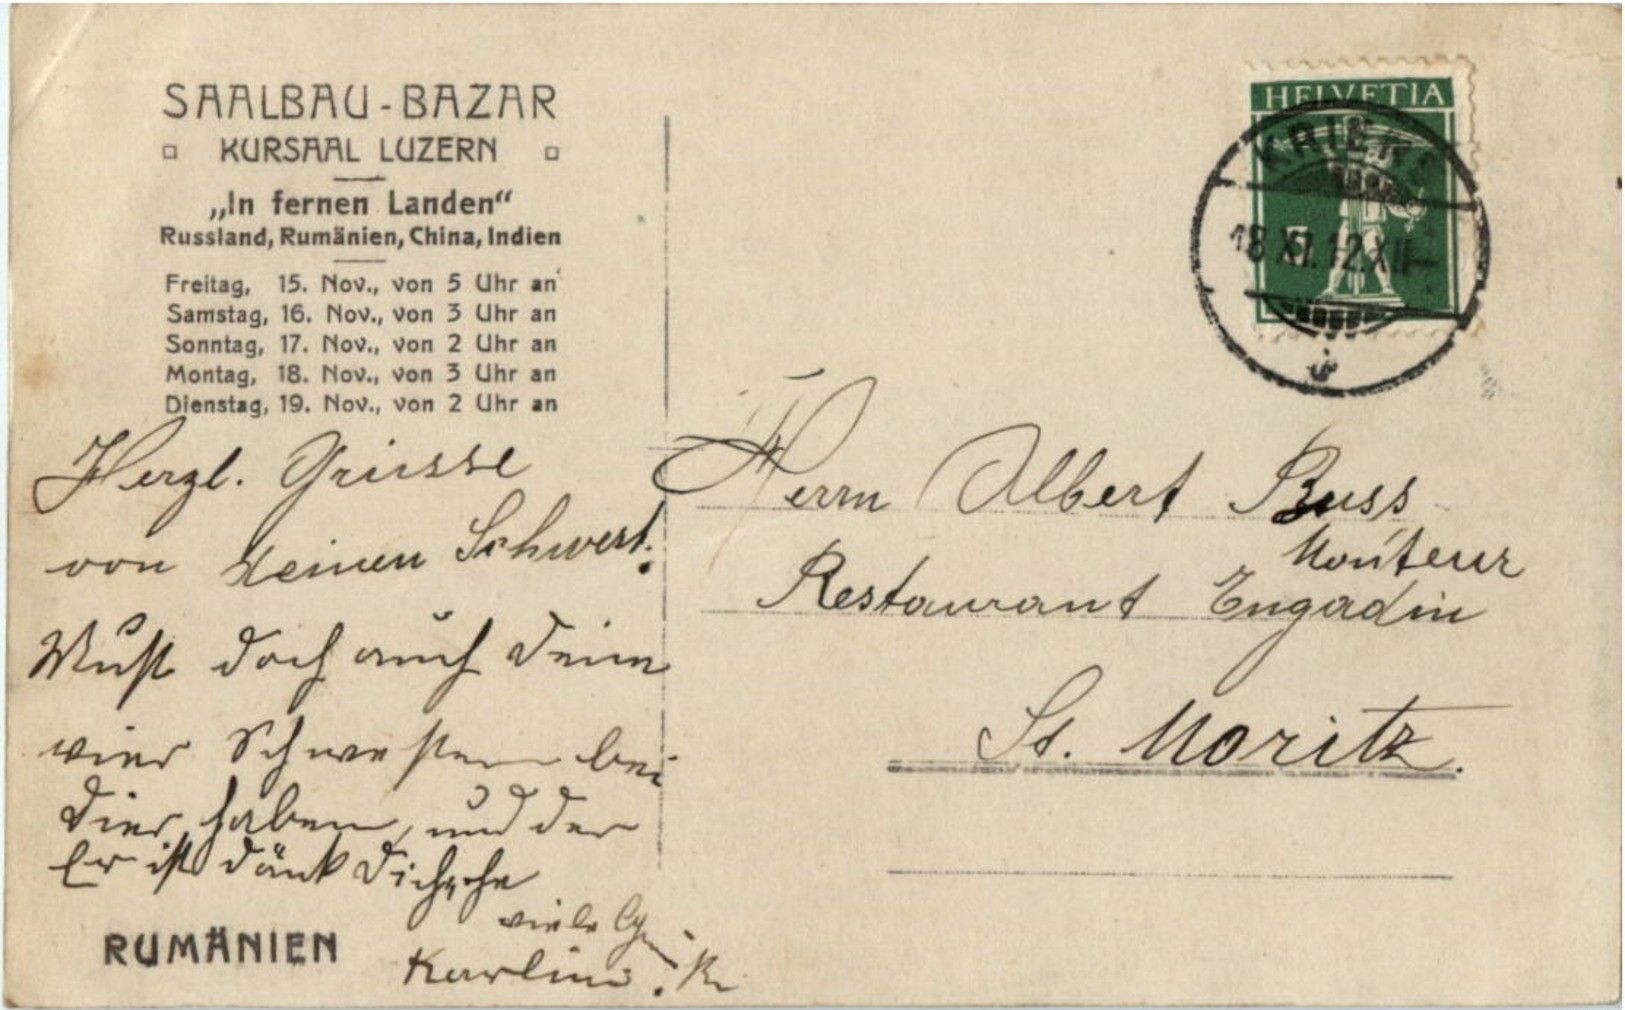 SAALBAU-BAZAR
KURSAAL LUZERN
„In fernen Landen“
Russland, Rumänien, China, Indien
Freitag, 15. Nov., von 5 Uhr an
Samstag, 16. Nov., von 3 Uhr an
Sonntag, 17. Nov., von 2 Uhr an
Montag, 18. Nov., von 3 Uhr an
Dienstag, 19. Nov., von 2 Uhr an
Herzl. Grüsse
von deinen Schwest.
Must doch auch deine
vier Schwestern bei
Dier haben, und der
Er ist dänk
viele
RUMÄNIEN
HELVETIA
KRIENS
18 XI. 12. XII
5
Herrn Albert Buss
Monteur
Restaurant Engadin
St. Moritz.